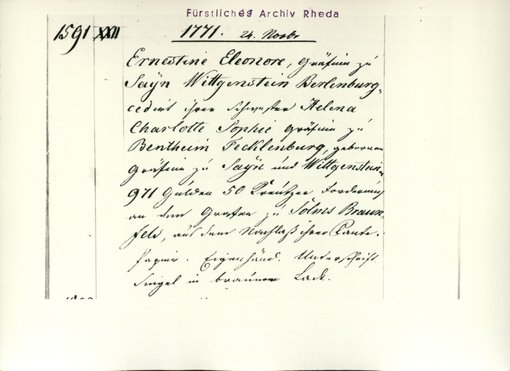 Fürstliches Archiv Rheda
1591 XXII 1771. 24. Novbr
Ernestine Eleonore, Gräfin zu
Sayn Wittgenstein Berlenburg,
cedirt ihrer Schwester Helena
Charlotte Sophie Gräfin zu
Bentheim Tecklenburg, geborenen
Gräfin zu Sayn und Wittgenstein
971 Gulden 50 Kreutzer Forderung
an den Grafen zu Solms Braun
fels, aus dem Nachlaß ihrer Tante.
Papier. Eigenhänd. Unterschrift
Siegel in braunem Lack.